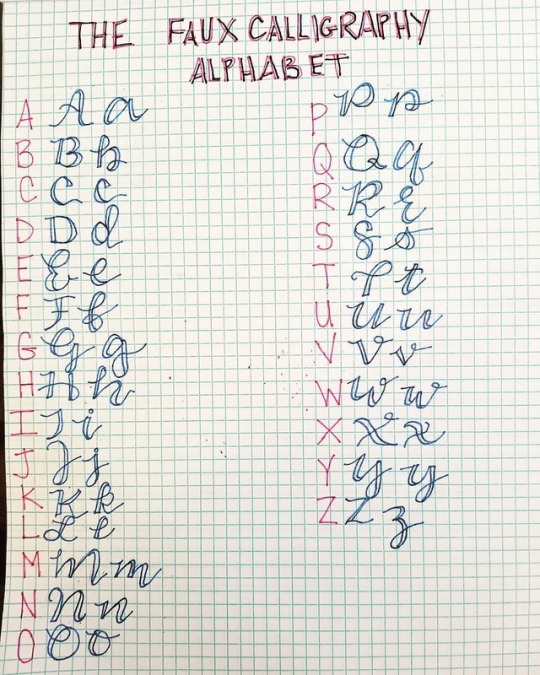 THE FAUX CALLIGRAPHY
ALPHABET
A A a
B B b
C C c
D D d
E E e
F F f
G G g
H H h
I I i
J J j
K K k
L L l
M M m
N N n
O O o
P P p
Q Q q
R R r
S S s
T T t
U U u
V V v
W W w
X X x
Y Y y
Z Z z